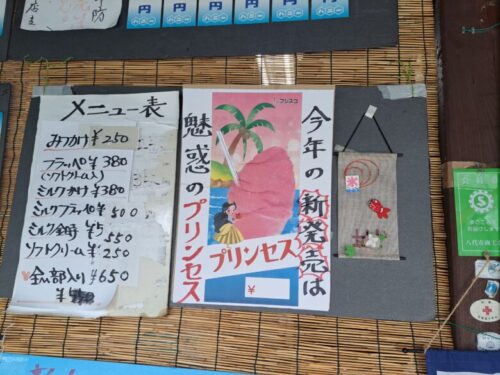 円 円 円 円 円
メニュー表
みつかけ ¥250
フラッペ ¥380
(ソフトクリーム入)
ミルクかけ ¥380
ミルクフラッペ ¥500
ミルク金時 ¥550
ソフトクリーム ¥250
全部入り ¥650
今年の新発売は
魅惑のプリンセス
フレスコ
プリンセス
¥
氷